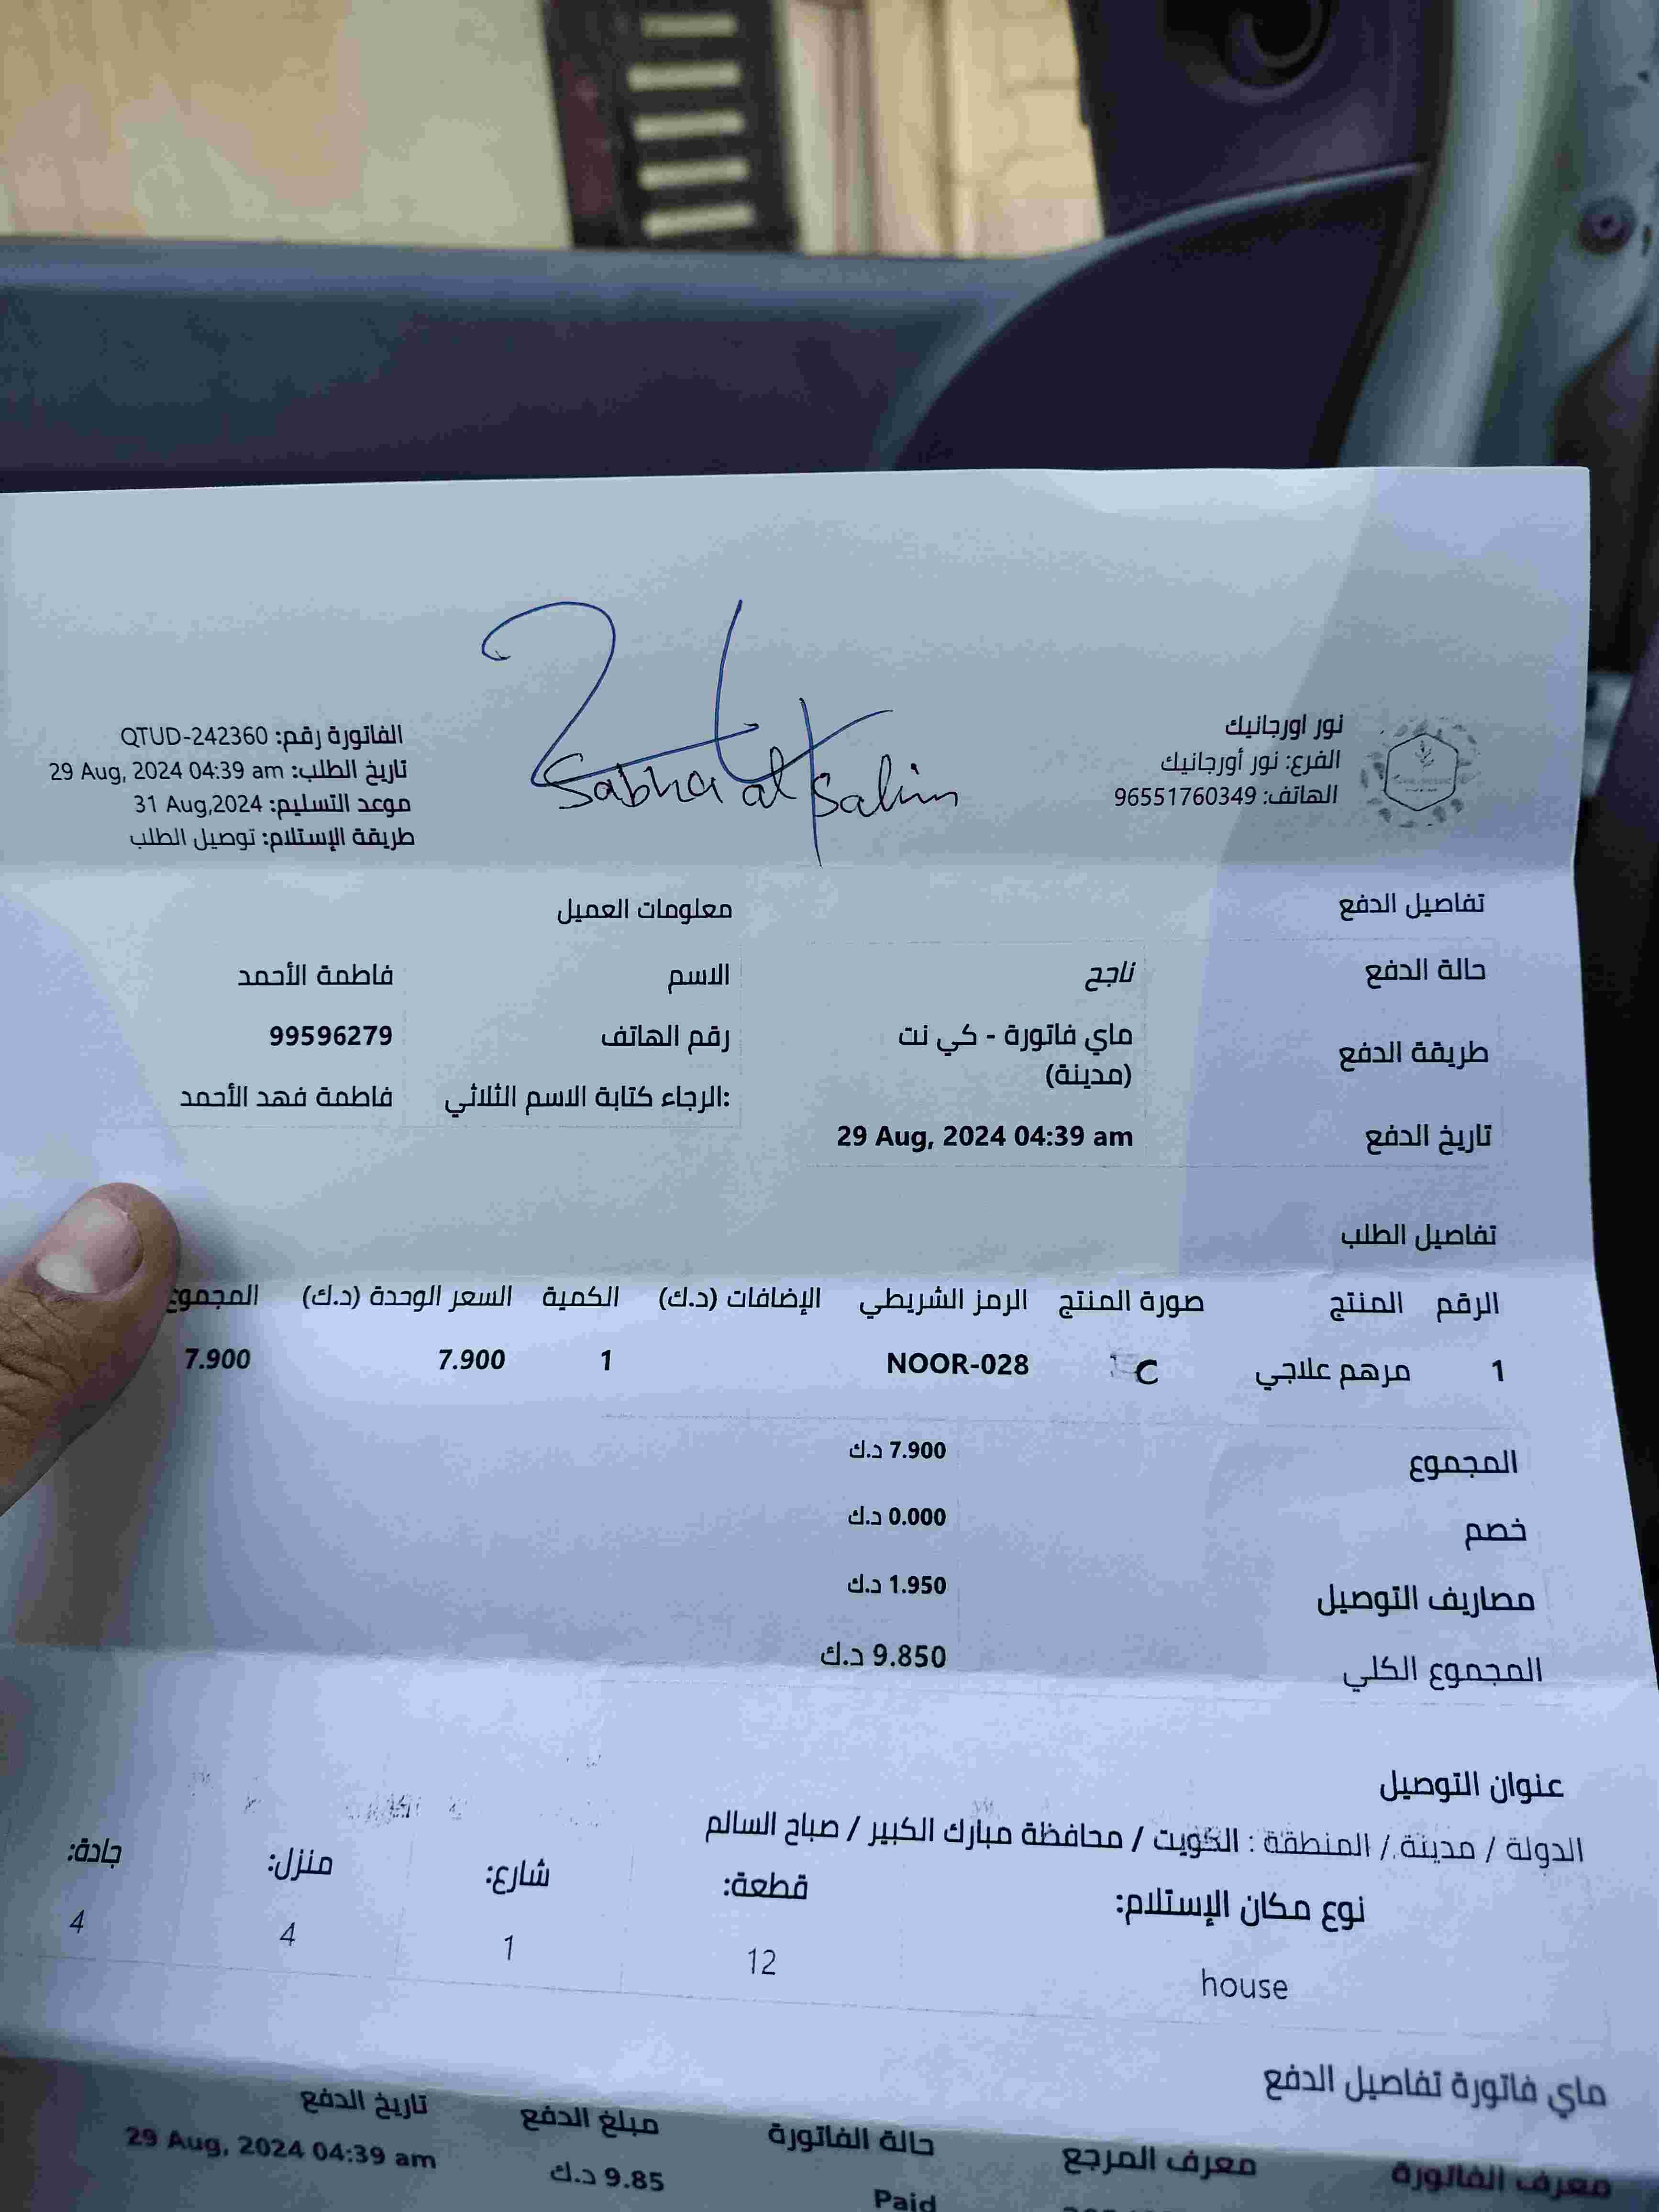 Sabha al Salim
نور اورجانيك
الفرع: نور أورجانيك
الهاتف: 96551760349
الفاتورة رقم: QTUD-242360
تاريخ الطلب: 29 Aug, 2024 04:39 am
موعد التسليم: 31 Aug,2024
طريقة الإستلام: توصيل الطلب
تفاصيل الدفع
حالة الدفع ناجح
طريقة الدفع ماي فاتورة - كي نت
(مدينة)
تاريخ الدفع 29 Aug, 2024 04:39 am
معلومات العميل
الاسم فاطمة الأحمد
رقم الهاتف 99596279
الرجاء كتابة الاسم الثلاثي: فاطمة فهد الأحمد
تفاصيل الطلب
الرقم المنتج صورة المنتج الرمز الشريطي الإضافات (د.ك) الكمية السعر الوحدة (د.ك) المجموع
1 مرهم علاجي NOOR-028 1 7.900 7.900
المجموع 7.900 د.ك
خصم 0.000 د.ك
مصاريف التوصيل 1.950 د.ك
المجموع الكلي 9.850 د.ك
عنوان التوصيل
الدولة / مدينة / المنطقة : الكويت / محافظة مبارك الكبير / صباح السالم
نوع مكان الإستلام: قطعة: شارع: منزل: جادة:
house 12 1 4 4
ماي فاتورة تفاصيل الدفع
معرف الفاتورة معرف المرجع حالة الفاتورة مبلغ الدفع تاريخ الدفع
Paid 9.85 د.ك 29 Aug, 2024 04:39 am